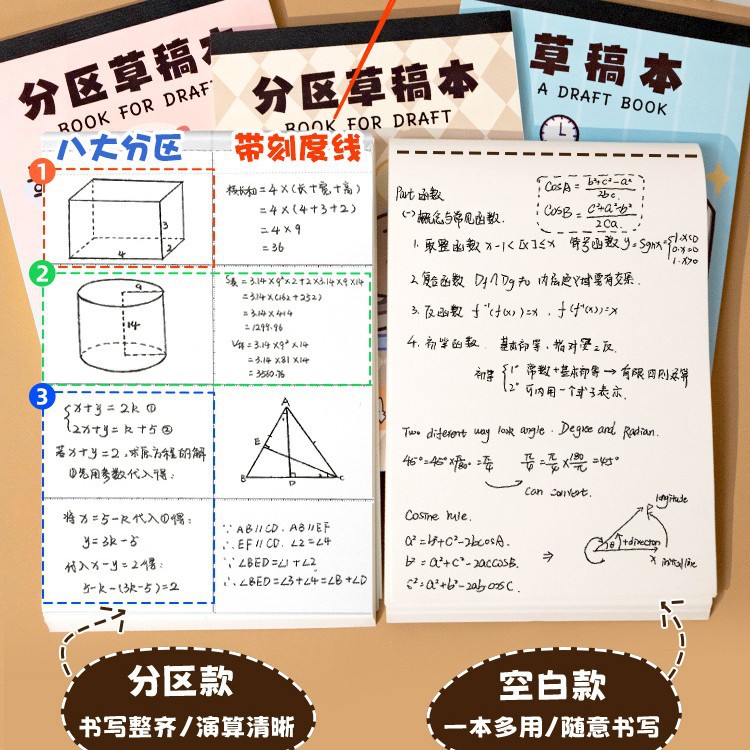 分区草稿本
BOOK FOR DRAFT
分区草稿本
BOOK FOR DRAFT
草稿本
A DRAFT BOOK
八大分区
带刻度线
1
3
2
4
棱长和=4×(长+宽+高)
=4×(4+3+2)
=4×9
=36
2
9
14
S表=3.14×9²×2+2×3.14×9×14
=3.14×(162+252)
=3.14×414
=1299.96
V柱=3.14×9²×14
=3.14×81×14
=3560.76
3
x+y=2k ①
2x+y=k+5 ②
若x+y=2,求原方程的解
①先用参数代入得:
A
E
B
D
C
将x=5-k代入①得:
y=3k-5
代入x-y=2得:
5-k-(3k-5)=2
∵AB∥CD, AB∥EF
∴EF∥CD, ∠2=∠4
∵∠BED=∠1+∠2
∴∠BED=∠3+∠4=∠B+∠D
Part 函数
(一)概念与常见函数.
CosA = b²+c²-a² / 2bc
CosB = c²+a²-b² / 2ca
1. 取整函数 x-1<[x]≤x 符号函数 y=Sgnx=
2. 复合函数 Df∩Dg≠ 内层定义域要有交集.
3. 反函数 f⁻¹(f(x))=x, f(f⁻¹(x))=x
4. 初等函数. 基本初等:
初等 1° 常数+基本初等→有限四则运算
2° 可以用一个式子表示.
Two different way look angle. Degree and Radian.
45°=45°×π/180°=π/4 π/4=π/4×180/π=45°
can convert.
Cosine rule.
a²=b²+c²-2bcosA.
b²=a²+c²-2accosB.
c²=a²+b²-2abcosC.
⇒
longitude
P
θ
+direction
x
initial line
分区款
书写整齐/演算清晰
空白款
一本多用/随意书写